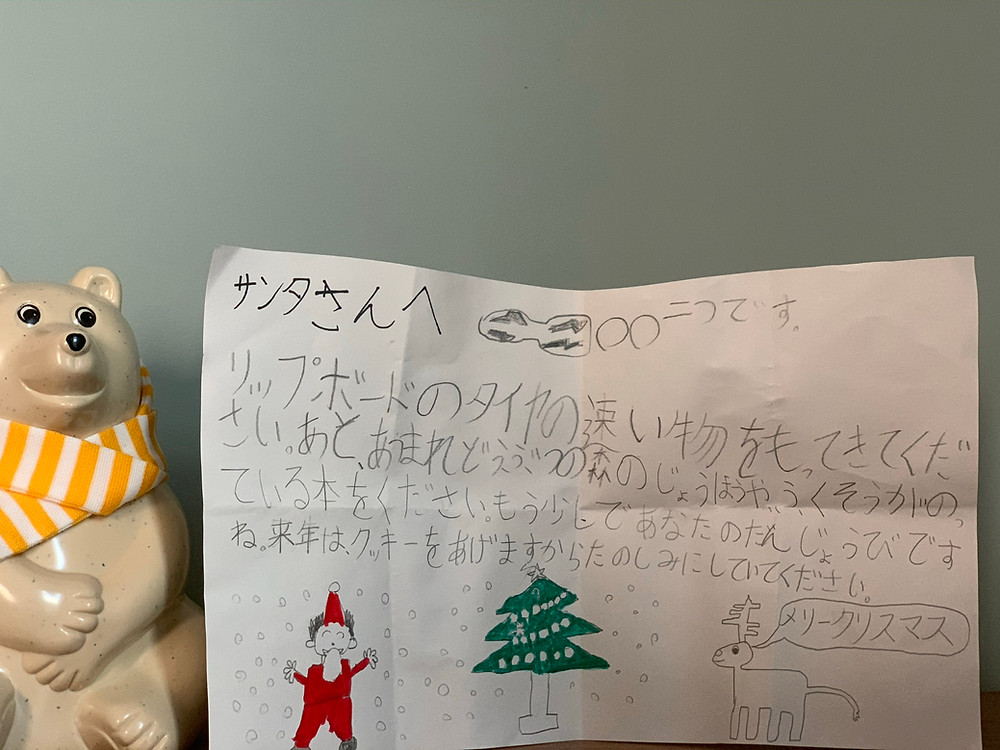 サンタさんへ
二つです。
リップボードのタイヤの速い物をもってきてくだ
さい。あと、あまれどうぶつの森のじょうほうや、ふくそうがのっ
ている本をください。もう少しであなたのたんじょうびです
ね。来年は、クッキーをあげますからたのしみにしていてください。
メリークリスマス